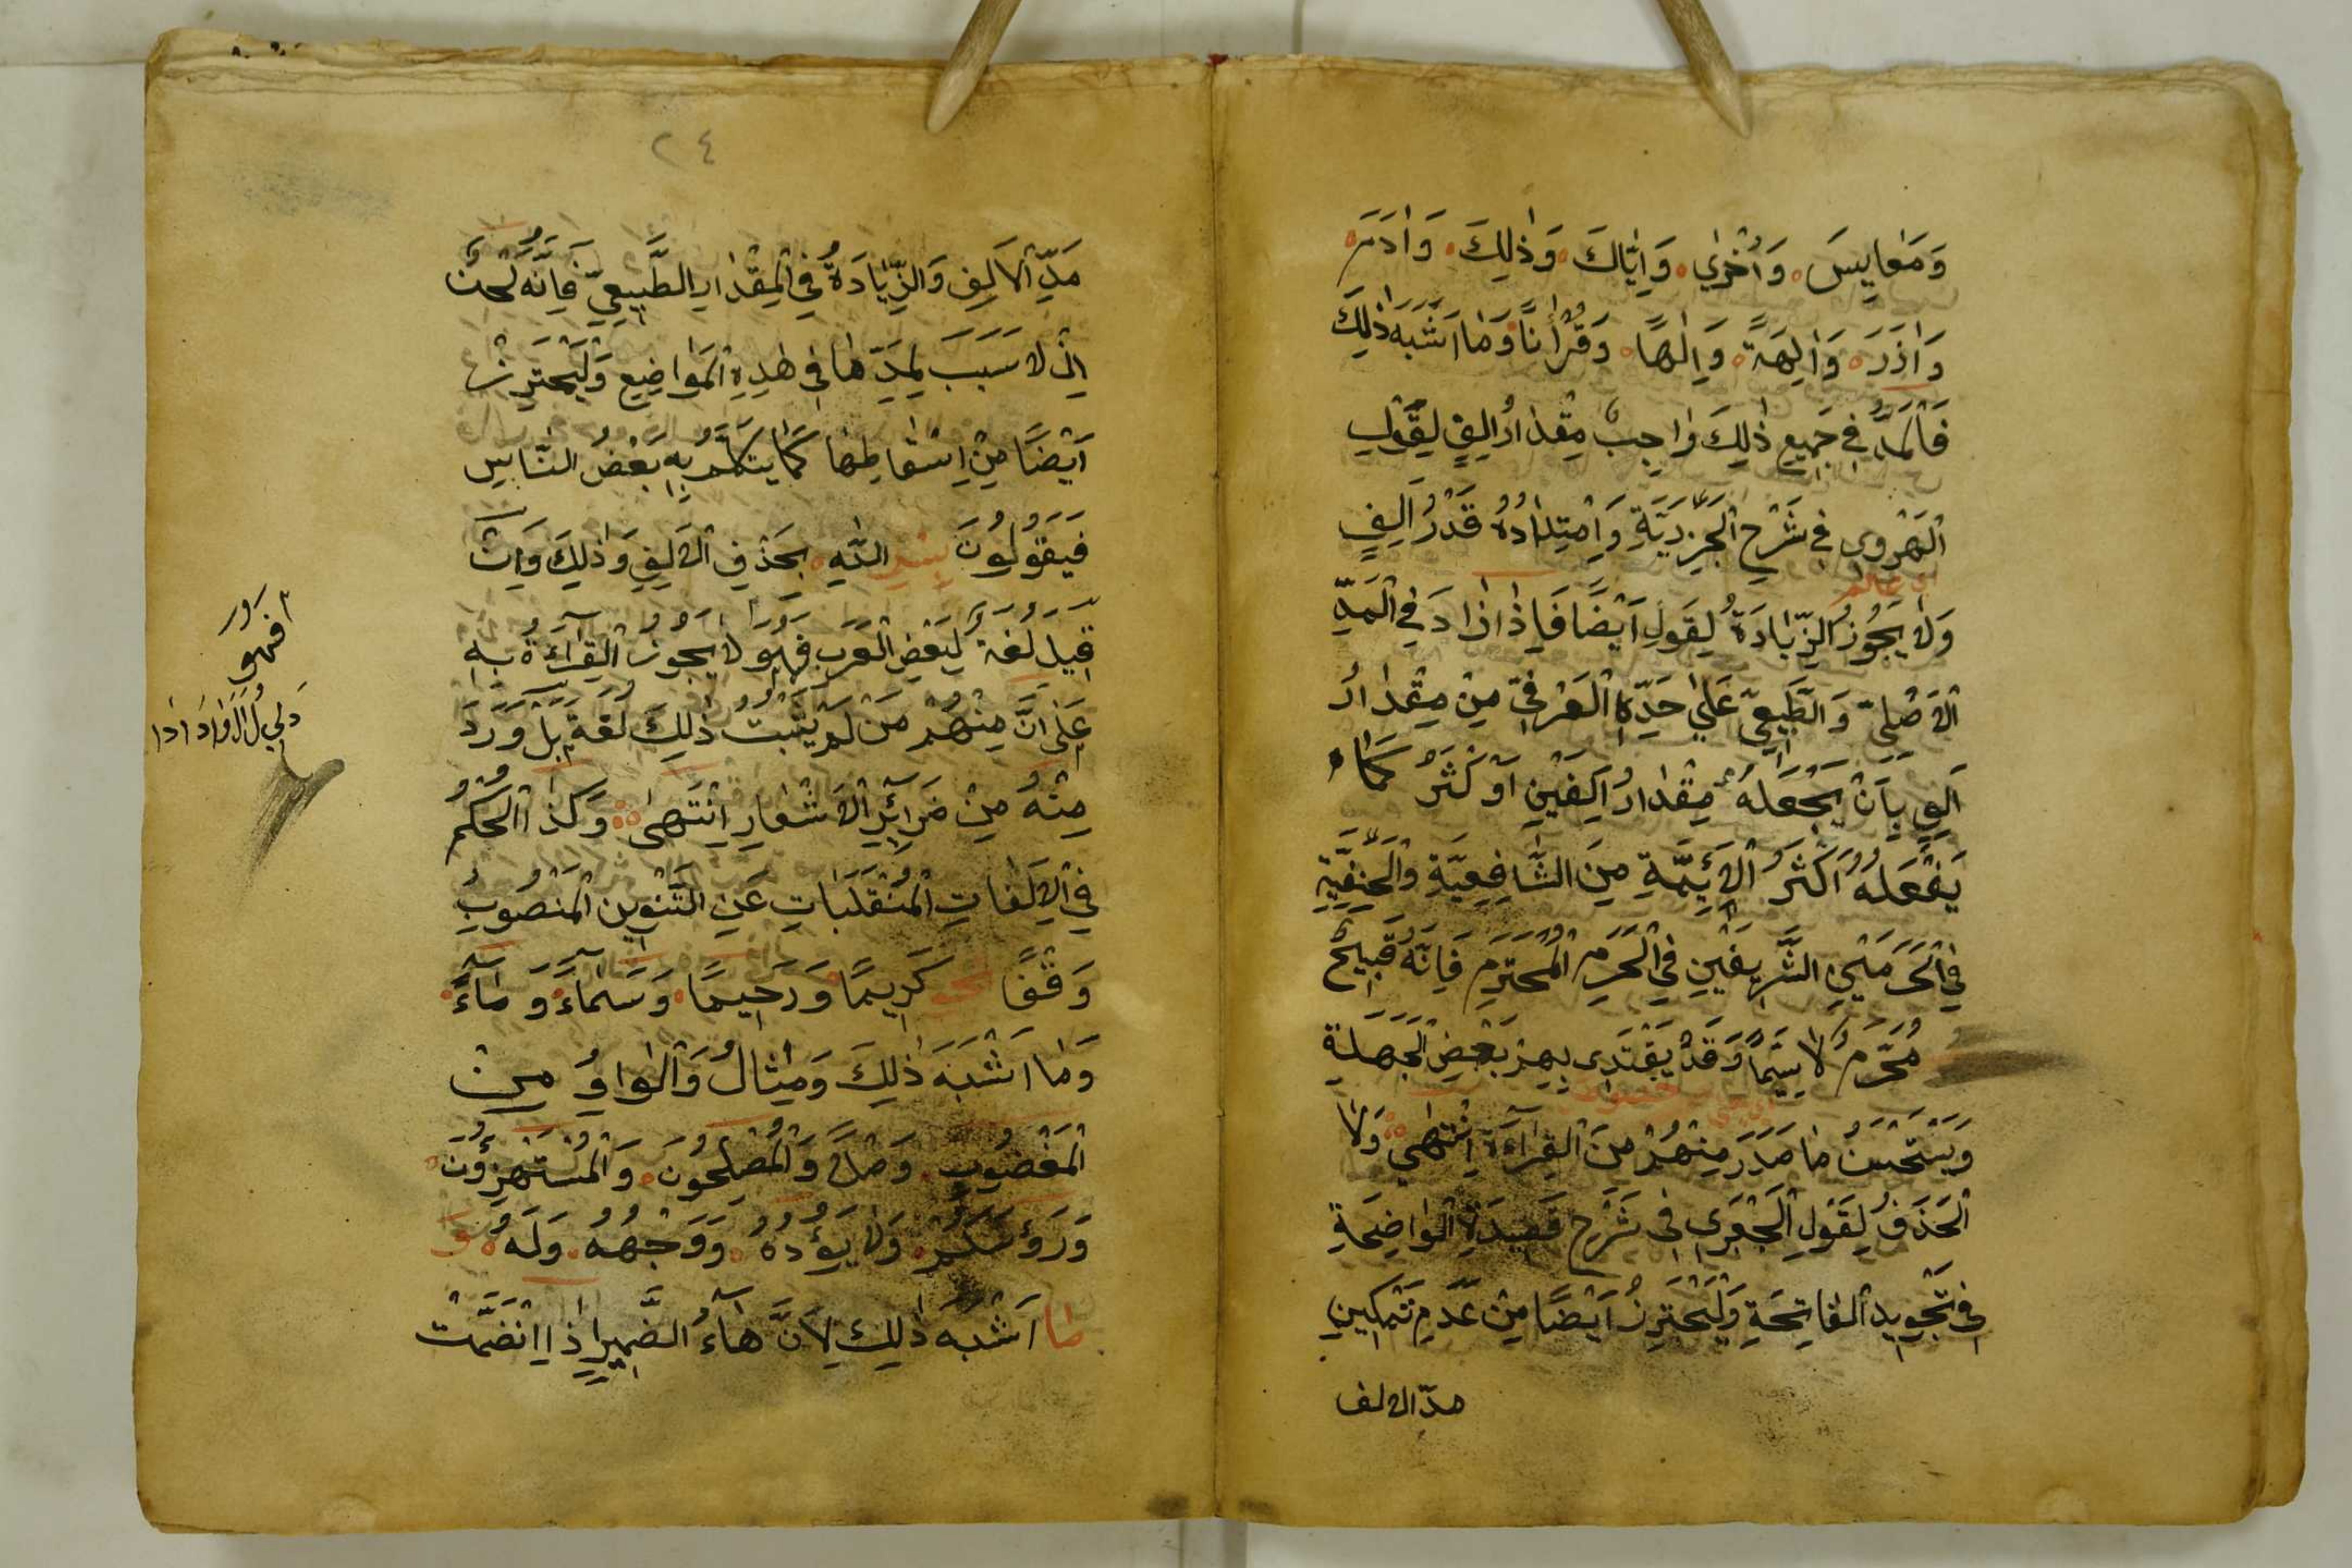 وَمَعَايِيسَ وَاُخْرٰي وَاِيَّاكَ وَذٰلِكَ وَاٰدَمَ
وَاٰذَرَ وَاٰلِهَةً وَاِلٰهًا وَقُرْاٰنًا وَمَا اَشْبَهَ ذٰلِكَ
فَالْمَدُّ فِي جَمِيعِ ذٰلِكَ وَاجِبٌ مِقْدَارُ اَلِفٍ لِقَوْلِ
الْهَرَوِي فِي شَرْحِ الْجَزَرِيَّةِ وَاِمْتِدَادُهُ قَدْرُ اَلِفٍ
اي عالم
وَلَا يَجُوزُ الزِّيَادَةُ لِقَوْلِ اَيْضًا فَاِذَا زَادَ فِي الْمَدِّ
الْاَصْلِيِّ وَالطَّبِيعِيِّ عَلٰي حَدِّهِ الْعُرْفِيِّ مِنْ مِقْدَارُ
اَلِفٍ بِاَنْ يَجْعَلَهُ مِقْدَارُ اَلِفَيْنِ اَوْ كْثَرُ كَمَا
يَفْعَلُهُ اَكْثَرُ الْاَئِمَّةِ مِنَ الشَّافِعِيَّةِ وَالْحَنَفِيَّةِ
فِي الْحَرَمَيْنِ الشَّرِيفَيْنِ فِي الْحَرَمِ الْمُحْتَرَمِ فَاِنَّهُ قَبِيحٌ
مُحَرَّمٌ لَا سِيَّمَا وَقَدْ يَقْتَدِى بِهِمْ بَعْضُ الْجَهَلَةِ
وَيَسْتَحْسِنُ مَا صَدَرَ مِنْهُمْ مِنَ الْقِرَاءَةِ اِنْتَهٰي وَلَا
الْحَذَفُ لِقَوْلِ الْجَعْبَرِي فِي شَرْحِ قَصِيدَةِ الْوَاضِحَةِ
فِي تَجْوِيدِ الْفَاتِحَةِ وَلْيَحْتَرِزْ اَيْضًا مِنْ عَدَمِ تَمْكِينِ
مدّ الالف
٢٤
مَدِّ الْاَلِفِ وَالزِّيَادَةُ فِي الْمِقْدَارِ الطَّبِيعِيِّ فَاِنَّهُ لَحْنٌ
اِذْ لَا سَبَبَ لِمَدِّهَا فِي هٰذِهِ الْمَوَاضِعِ وَلْيَحْتَرِزْ
اَيْضًا مِنْ اِسْقَاطِهَا كَمَا يَتَكَلَّمُ بِهِ بَعْضُ النَّاسِ
فَيَقُولُونَ اللّٰهِ بِحَذْفِ الْاَلِفِ وَذٰلِكَ وَاِنْ
قِيلَ لُغَةٌ لِبَعْضِ الْعَرَبِ فَهُوَ لَا يَجُوزُ الْقِرَاءَةُ بِهِ
عَلٰى اَنَّ مِنْهُمْ مَنْ لَمْ يُثْبِتْ ذٰلِكَ لُغَةً بَلْ وَرَدَ
مِنْهُ مِنْ ضَرَائِرِ الْاَشْعَارِ اِنْتَهٰى وَكَذَا الْحُكْمُ
فِي الْاَلِفَاتِ الْمُنْقَلَبَاتِ عَنِ التَّنْوِينِ الْمَنْصُوبِ
وَقْفًا نحو كَرِيمًا وَرَحِيمًا وَسَمَاءً وَمَاءً
وَمَا اَشْبَهَ ذٰلِكَ وَمِثَالُ وَالْوَاوُ مِنْ
الْمَغْضُوبِ وَالْمُفْلِحُونَ وَالْمُسْتَهْزِؤُنَ
وَرُؤُسَكُمْ وَلَا يَؤُدُهُ وَوَجْهُهُ وَلَهُ وَ
مَا اَشْبَهَ ذٰلِكَ لِاَنَّ هَاءُ الضَّمِيرِ اِذَا اِنْضَمَّتْ
فهو